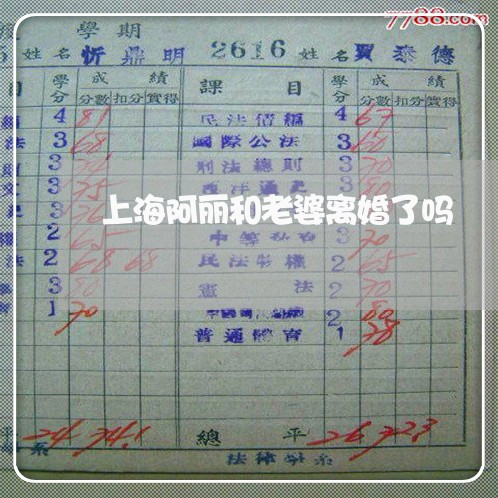 7788.com
學期
姓名 忻鼎明 2616 姓名 賈泰德
目 學分 成績 課目 學分 成績
分數 扣分 實得 分數 扣分 實得
4 81 民法債編 4 67
法 3 68 國際公法 3 60
3 刑法總則 3 70
文 3 75 西洋通史 3 80
上海阿丽和老婆离婚了吗
2 65 3 70
法 2 68 68 民法物權 2 65
3 80 憲法 2 70
育 1 70 2 80
普通體育 1 78
平 24 74.1 總平 26 72.3
系 法律學系